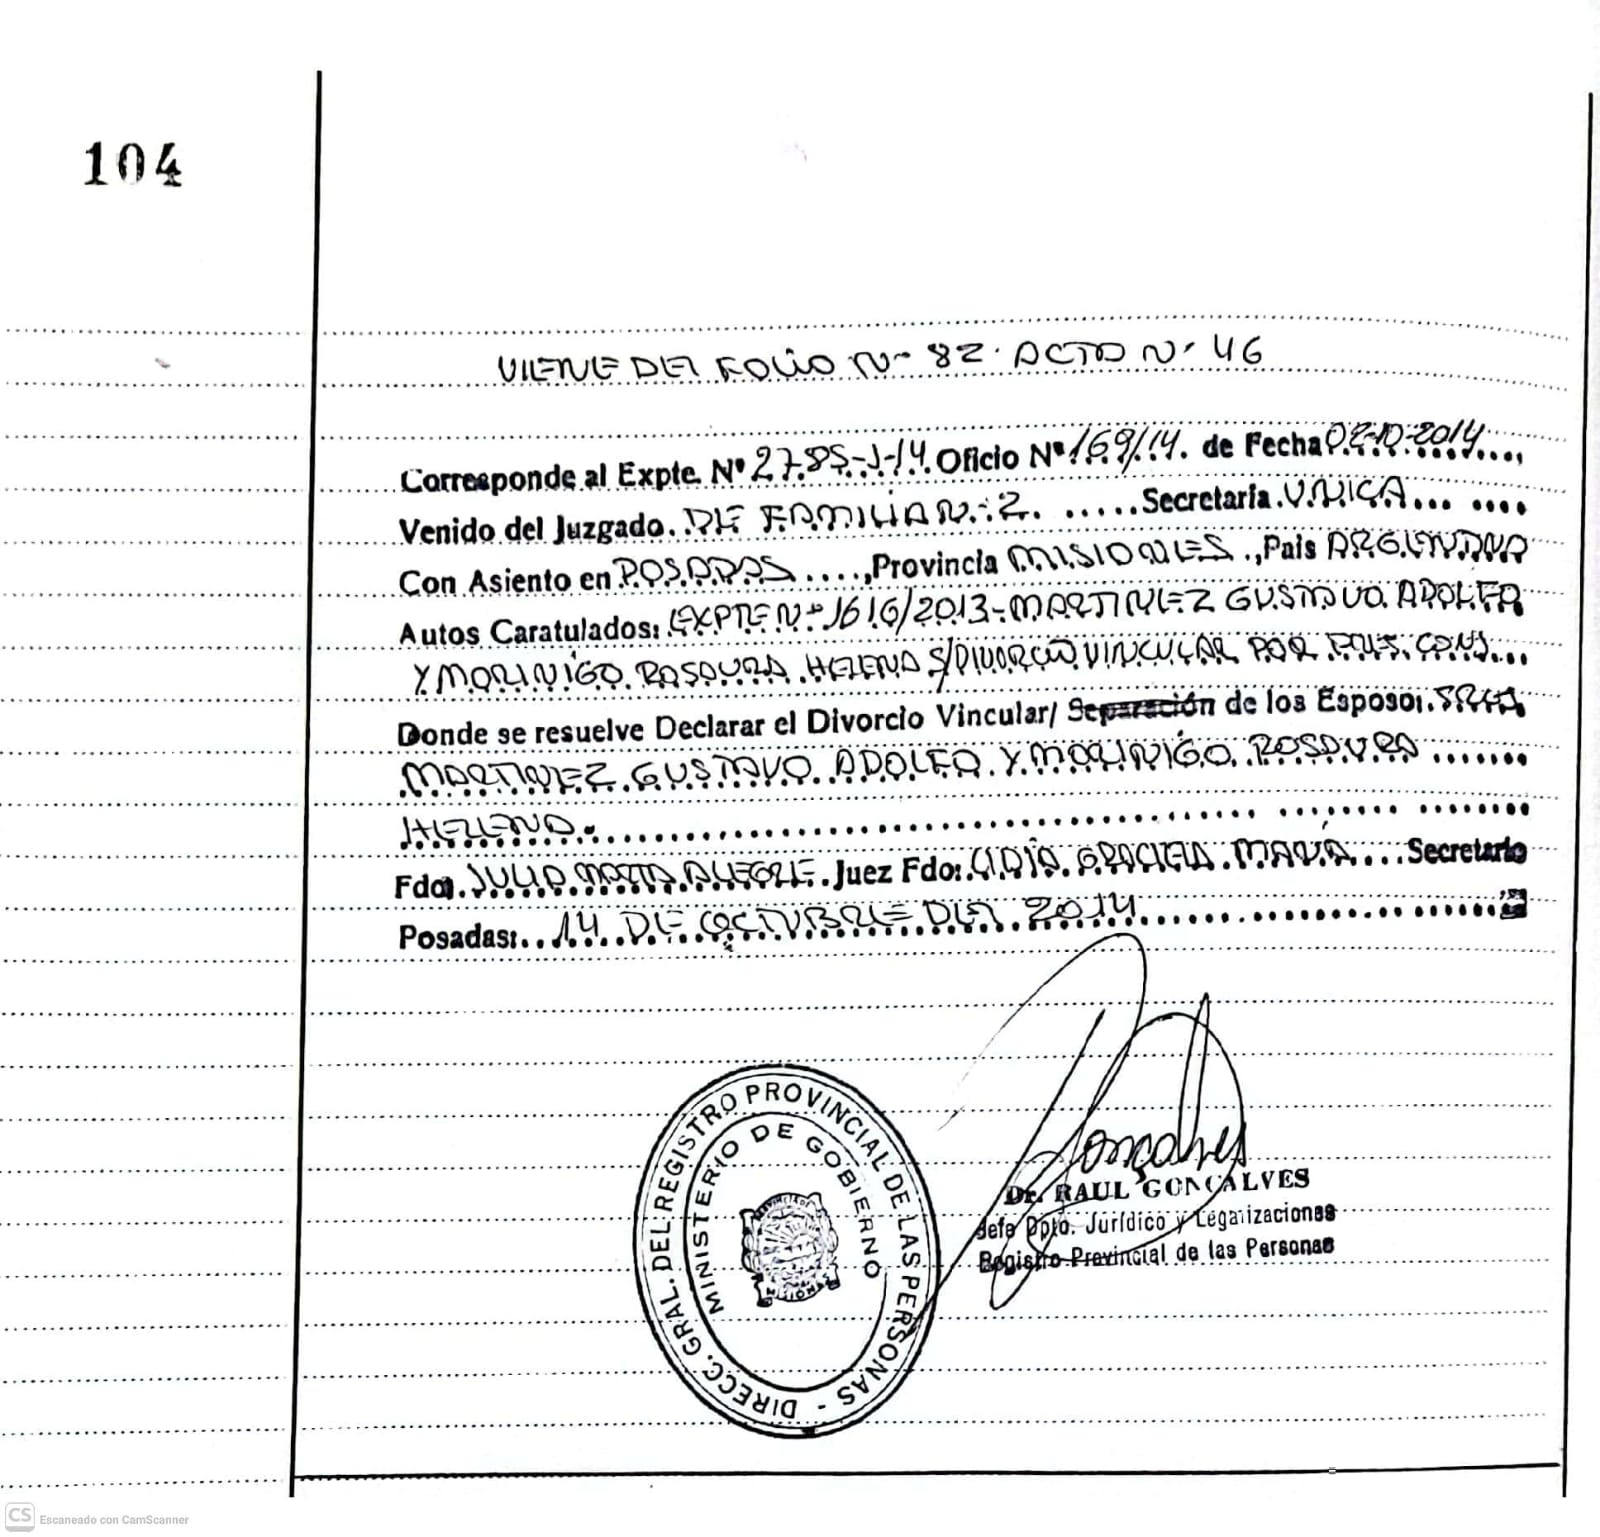 104
VIENE DEL FOLIO Nº 82. ACTA Nº 46
Corresponde al Expte. Nº 2785-J-14. Oficio Nº 169/14. de Fecha 02-10-2014...,
Venido del Juzgado. DE FAMILIA Nº 2. .....Secretaria. UNICA... ....
Con Asiento en POSADAS ....,Provincia MISIONES .,Pais ARGENTINA
Autos Caratulados: EXPTE Nº 1616/2013-MARTINEZ GUSTAVO ADOLFO
Y MORINIGO ROSAURA HELENA S/DIVORCIO VINCULAR POR PRES. CONJ...
Donde se resuelve Declarar el Divorcio Vincular/ Separación de los Esposos.
MARTINEZ GUSTAVO ADOLFO Y MORINIGO ROSAURA .......
HELENA.
Fdo. JULIA MARTA ALEGRE. Juez Fdo: LIDIA GRACIELA MAVIA... Secretario
Posadas:.. 14 DE OCTUBRE DEL 2014
DIRECC. GRAL. DEL REGISTRO PROVINCIAL DE LAS PERSONAS -
MINISTERIO DE GOBIERNO
MISIONES
Goncalves
Dr. RAUL GONCALVES
Jefe Dpto. Jurídico y Legalizaciones
Registro Provincial de las Personas
CS Escaneado con CamScanner